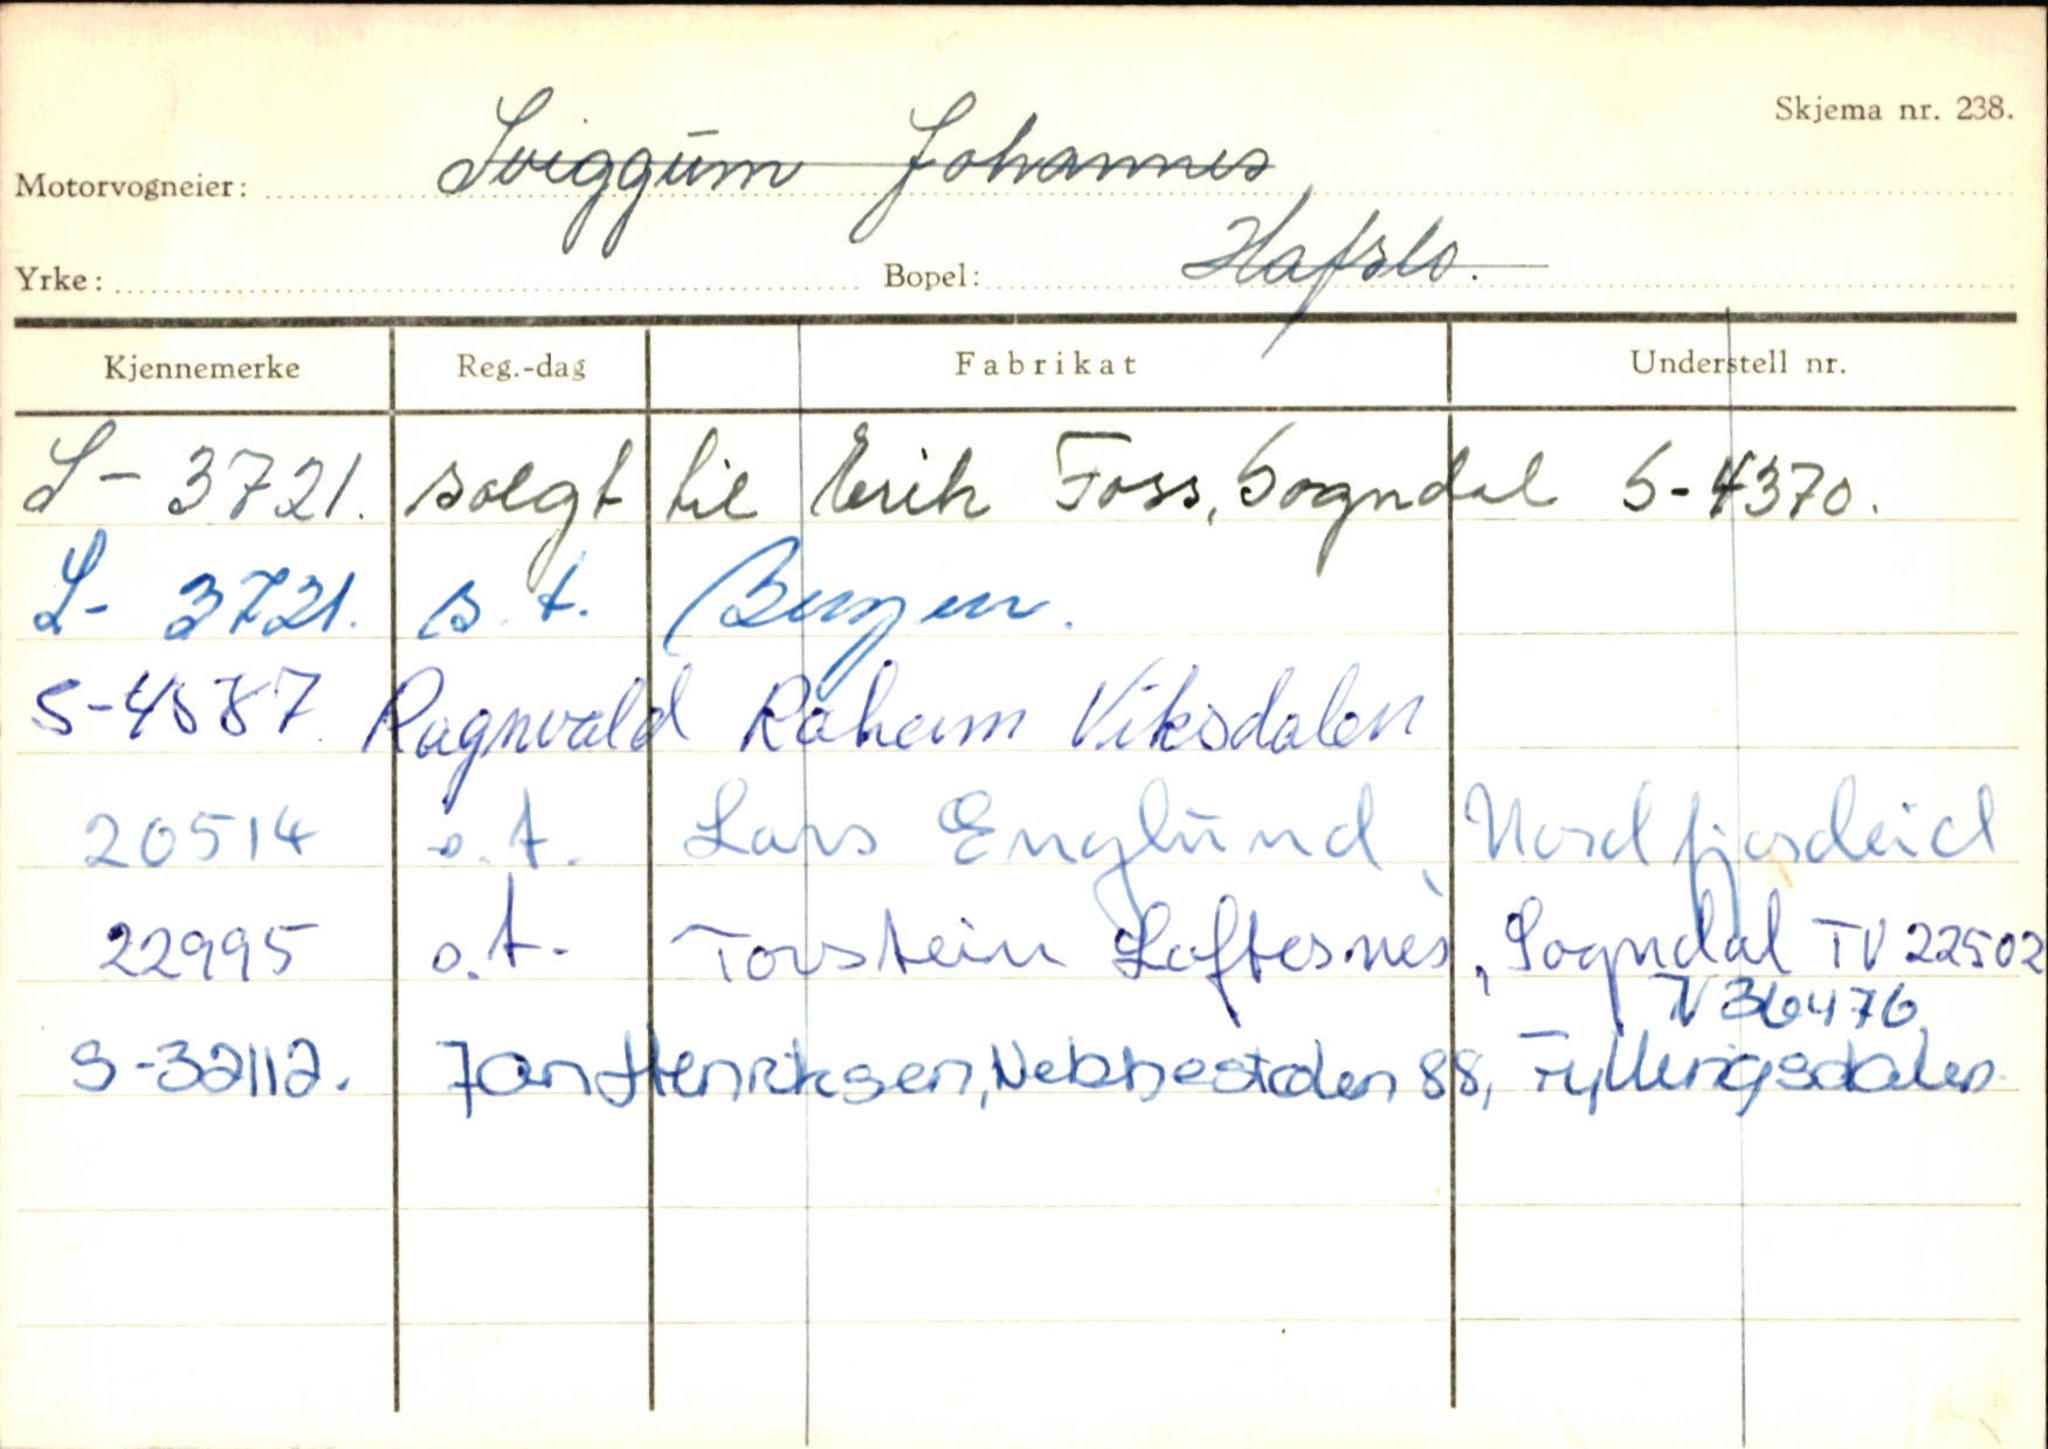 Skjema nr. 238.
Motorvogneier: Sviggum Johannes
Yrke: Bopel: Hafslo.
Kjennemerke Reg.-dag Fabrikat Understell nr.
S- 3721. solgt til Erik Foss, Sogndal S-4370.
S- 3721. s.t. Bergen.
S-4587 Ragnvald Råheim Viksdalen
20514 s.t. Lars Englund, Nordfjordeid
22995 s.t. Torstein Loftesnes, Sogndal TV 22502
TV 36476
S-32112. Jan Henriksen, Nebbestølen 88, Fyllingsdalen